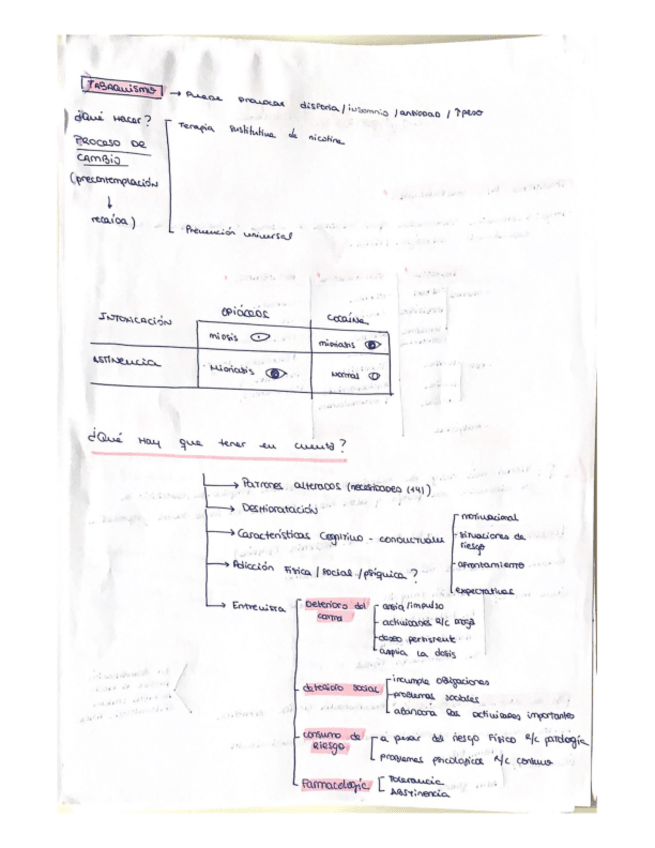 TABAQUISMO → Puede provocar disforia/insomnio/ansiedad/↑peso
¿Qué hacer?
Terapia sustitutiva de nicotina
PROCESO DE CAMBIO
(precontemplación
↓
recaída)
Prevención universal
OPIÁCEOS COCAÍNA
INTOXICACIÓN miosis midriasis
ABSTINENCIA Midriasis Normal
¿Qué hay que tener en cuenta?
→ Patrones alterados (necesidades (14))
→ Deshidratación
→ Características Cognitivo - conductuales
motivacional
situaciones de
riesgo
afrontamiento
expectativas
→ Adicción Física/social/psíquica?
→ Entrevista
Deterioro del
control
ansia/impulso
actividades r/c droga
deseo persistente
amplía la dosis
deterioro social
incumple obligaciones
problemas sociales
abandona las actividades importantes
consumo de
riesgo
a pesar del riesgo Físico r/c patología
problemas psicológicos r/c consumo
Farmacológic
Tolerancia
Abstinencia